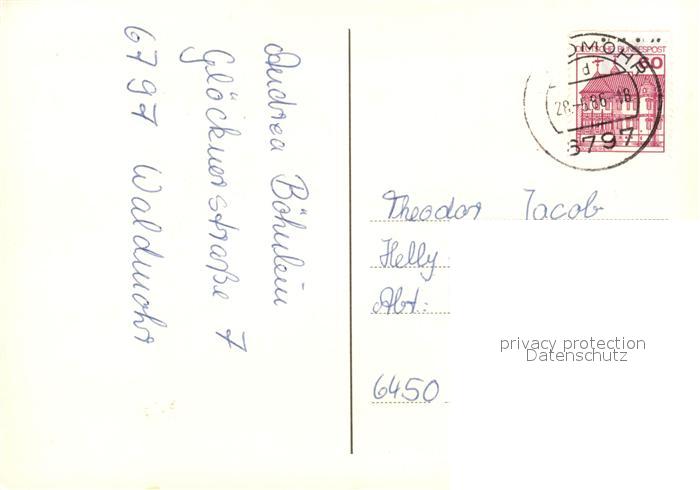 Andrea Böhnlein
Glöcknerstraße 7
6797 Waldmohr
DEUTSCHE BUNDESPOST
60
d
28.-5.86-18
6797
Theodor Jacob
Helly
Abt.:
privacy protection
Datenschutz
6450